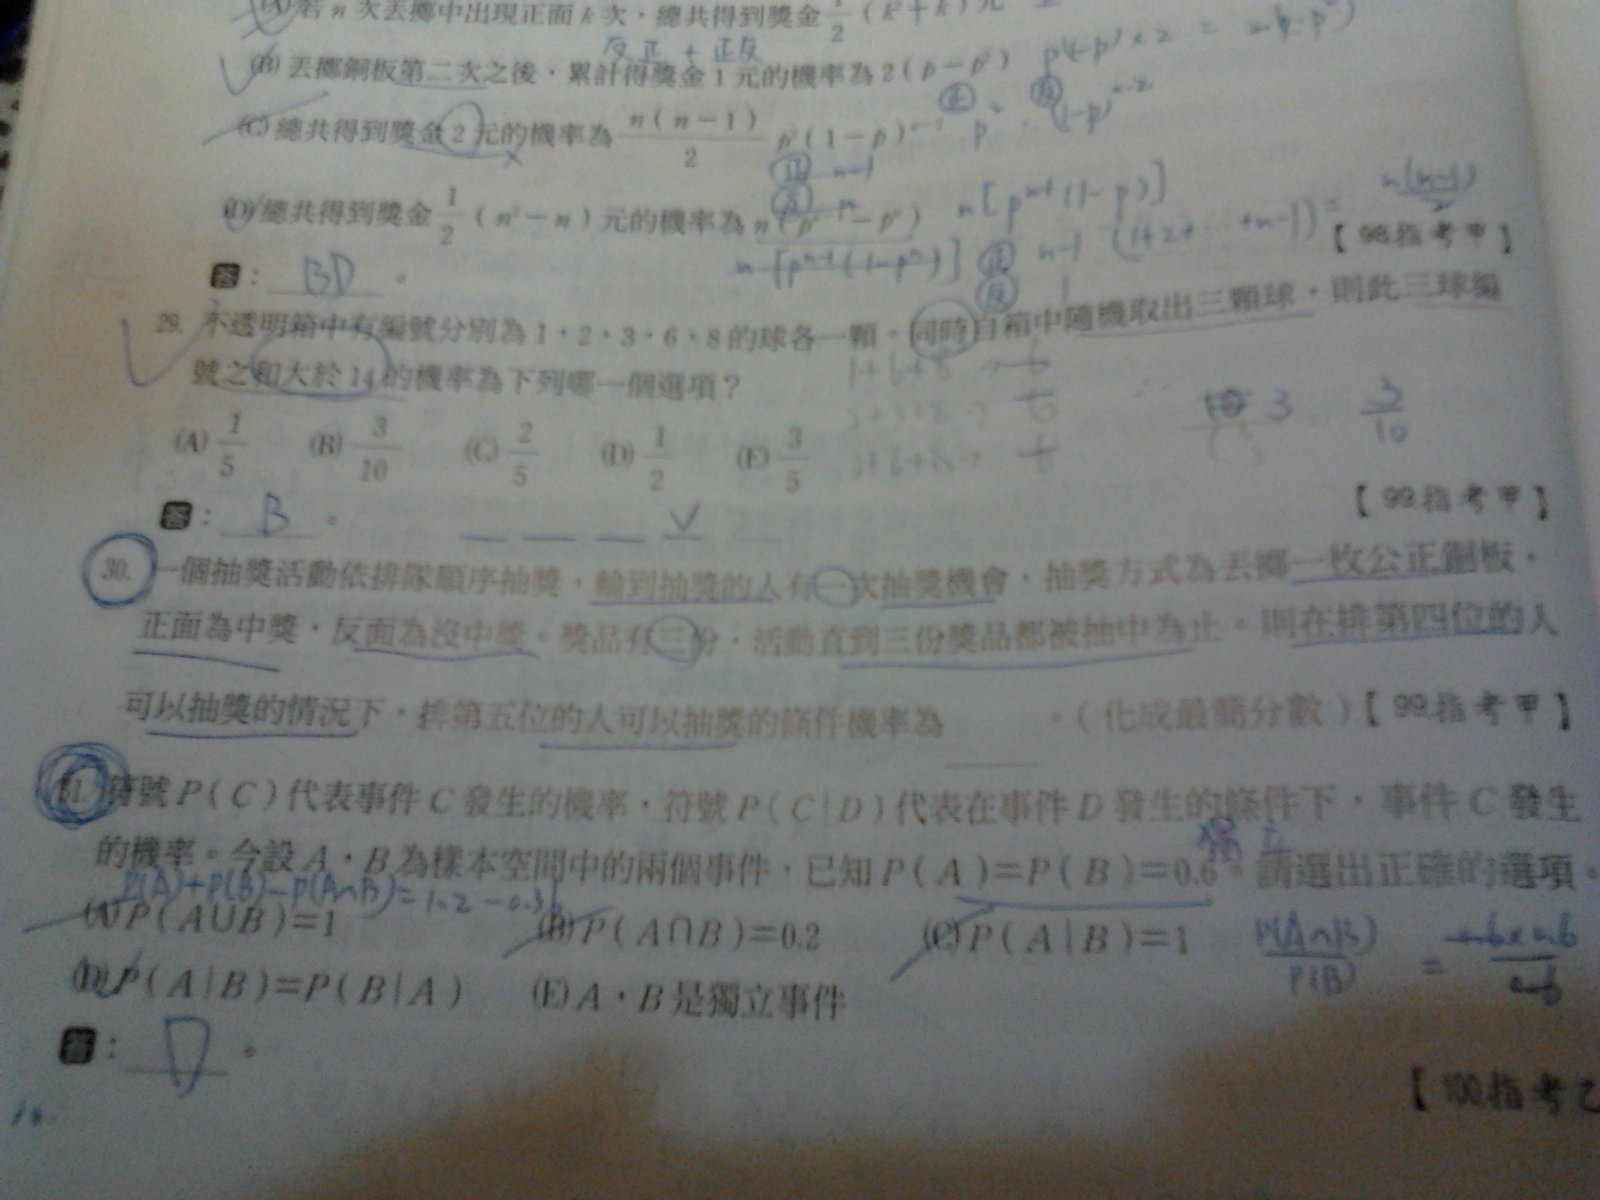 (A) 若 n 次丟擲中出現正面 k 次，總共得到獎金 1/2 (k²+k) 元
反正 + 正反
(B) 丟擲銅板第二次之後，累計得獎金 1 元的機率為 2(p－p²) p(1-p)×2 = 2(p-p²)
正 反
(C) 總共得到獎金 2 元的機率為 n(n－1)/2 p²(1－p)ⁿ⁻² p² · (1-p)ⁿ⁻²
正 n-1
(D) 總共得到獎金 1/2 (n²－n) 元的機率為 n(pⁿ⁻¹－pⁿ) n[pⁿ⁻¹(1-p)] 正 n-1 (1+2+…+n-1) = n(n-1)/2
【98.指考甲】
n[pⁿ⁻¹(1-pⁿ)] 反 1
答：BD。
29. 不透明箱中有編號分別為 1、2、3、6、8 的球各一顆。同時自箱中隨機取出三顆球，則此三球編
號之和大於 14 的機率為下列哪一個選項？
1+6+8
3+6+8
3 3/10
(A) 1/5 (B) 3/10 (C) 2/5 (D) 1/2 (E) 3/5
【99.指考甲】
答：B。
30. 一個抽獎活動依排隊順序抽獎，輪到抽獎的人有一次抽獎機會，抽獎方式為丟擲一枚公正銅板，
正面為中獎，反面為沒中獎。獎品有三份，活動直到三份獎品都被抽中為止。則在排第四位的人
可以抽獎的情況下，排第五位的人可以抽獎的條件機率為 。(化成最簡分數)【99.指考甲】
31. 符號 P(C) 代表事件 C 發生的機率，符號 P(C|D) 代表在事件 D 發生的條件下，事件 C 發生
獨立
的機率。今設 A、B 為樣本空間中的兩個事件，已知 P(A)=P(B)=0.6。請選出正確的選項。
P(A)+P(B)-P(A∩B)=1.2-0.36
(A) P(A∪B)=1 (B) P(A∩B)=0.2 (C) P(A|B)=1 P(A∩B)/P(B) = 0.6×0.6/0.6
(D) P(A|B)=P(B|A) (E) A、B 是獨立事件
答：D。
【100.指考乙